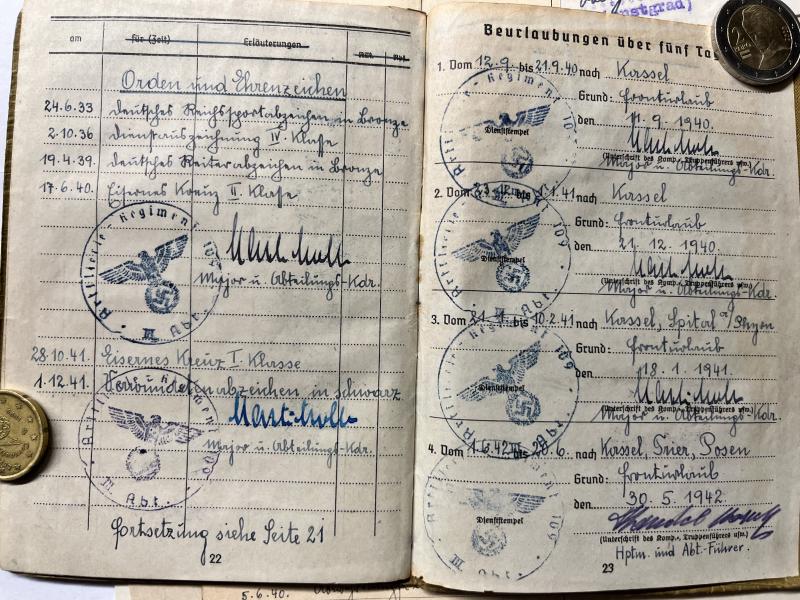 am für (Zeit) Erläuterungen
Orden und Ehrenzeichen
24.6.33 Deutsches Reichssportabzeichen in Bronze
2.10.36 Dienstauszeichnung IV. Klasse
19.4.39. Deutsches Reiterabzeichen in Bronze
17.6.40. Eisernes Kreuz II. Klasse
Artillerie-Regiment 109
III. Abt.
Major u. Abteilungs-Kdr.
28.10.41. Eisernes Kreuz I. Klasse
1.12.41. Verwundetenabzeichen in schwarz
Artillerie-Regiment 109
III. Abt.
Major u. Abteilungs-Kdr.
Fortsetzung siehe Seite 21
22
nstgrad)
Beurlaubungen über fünf Tag
1. Vom 12.9. bis 21.9.40 nach Kassel
Grund: Fronturlaub
den 11.9. 1940.
Dienststempel
(Unterschrift des Komp.-, Truppenführers usw.)
Major u. Abteilungs-Kdr.
2. Vom 23.12. bis 1.1.41 nach Kassel
Grund: Fronturlaub
den 21.12. 1940.
Dienststempel
(Unterschrift des Komp.-, Truppenführers usw.)
Major u. Abteilungs-Kdr.
3. Vom 21.1. bis 10.2.41 nach Kassel, Spital a/Pyhrn
Grund: Fronturlaub
den 18.1. 1941.
Dienststempel
(Unterschrift des Komp.-, Truppenführers usw.)
Major u. Abteilungs-Kdr.
4. Vom 1.6.42 bis 20.6. nach Kassel, Trier, Posen
Grund: Fronturlaub
den 30.5. 1942
Dienststempel
(Unterschrift des Komp.-, Truppenführers usw.)
Hptm. und Abt.-Führer.
23
5.6.40.